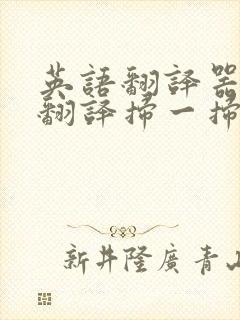 英語翻譯器
翻譯掃一掃
新井隆廣 青山